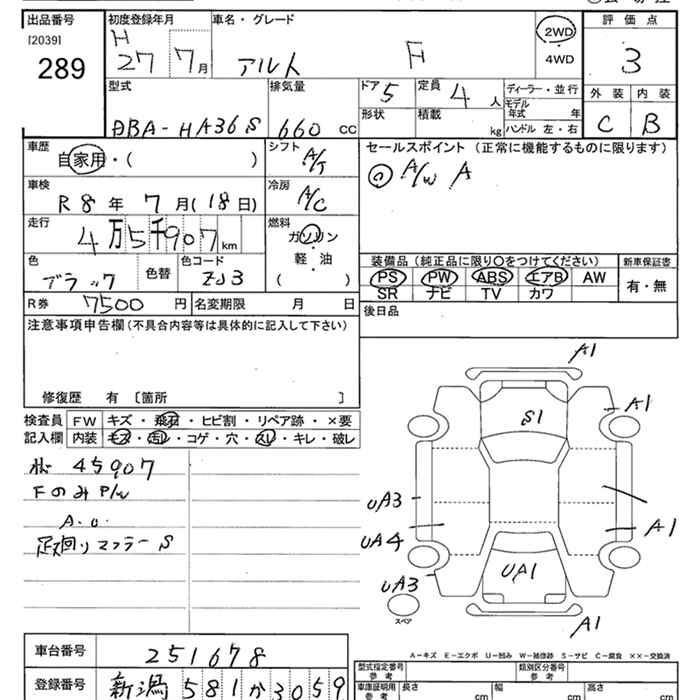 出品番号 初度登録年月 車名・グレード 評価点
[2039] H 27 7月 アルト F 2WD 4WD 3
289
型式 排気量 ドア 5 定員 4 人 ディーラー・並行 外装 内装
DBA-HA36S 660 CC 形状 積載 kg モデル年式 年 C B
ハンドル 左・右
車歴 自家用・( ) シフト A/T セールスポイント (正常に機能するものに限ります)
車検 R8年 7月(18日) 冷房 A/C A/W A
走行 4万5千907km 燃料 ガソリン・軽・油 ( )
装備品 (純正品に限り○をつけてください) 新車保証書
色 ブラック 色替 色コード ZJ3 PS PW ABS エアB AW 有・無
SR ナビ TV カワ
R券 7500円 名変期限 月 日 後日品
注意事項申告欄 (不具合内容等は具体的に記入して下さい)
修復歴 有 〔箇所 〕
検査員 FW キズ・飛石・ヒビ割・リペア跡・×要
記入欄 内装 キズ・汚レ・コゲ・穴・スレ・キレ・破レ
45907
FのみP/W
A.C
足回りマフラーS
A1
S1
A1
UA3
A1
UA4
UA1
UA3
スペア
A1
A-キズ E-エクボ U-凹み W-補修跡 S-サビ C-腐食 ××-交換済
車台番号 251678
登録番号 新潟 581 か 3059
型式指定番号 参考 類別区分番号 参考
車庫証明用 参考 長さ cm 幅 cm 高さ cm